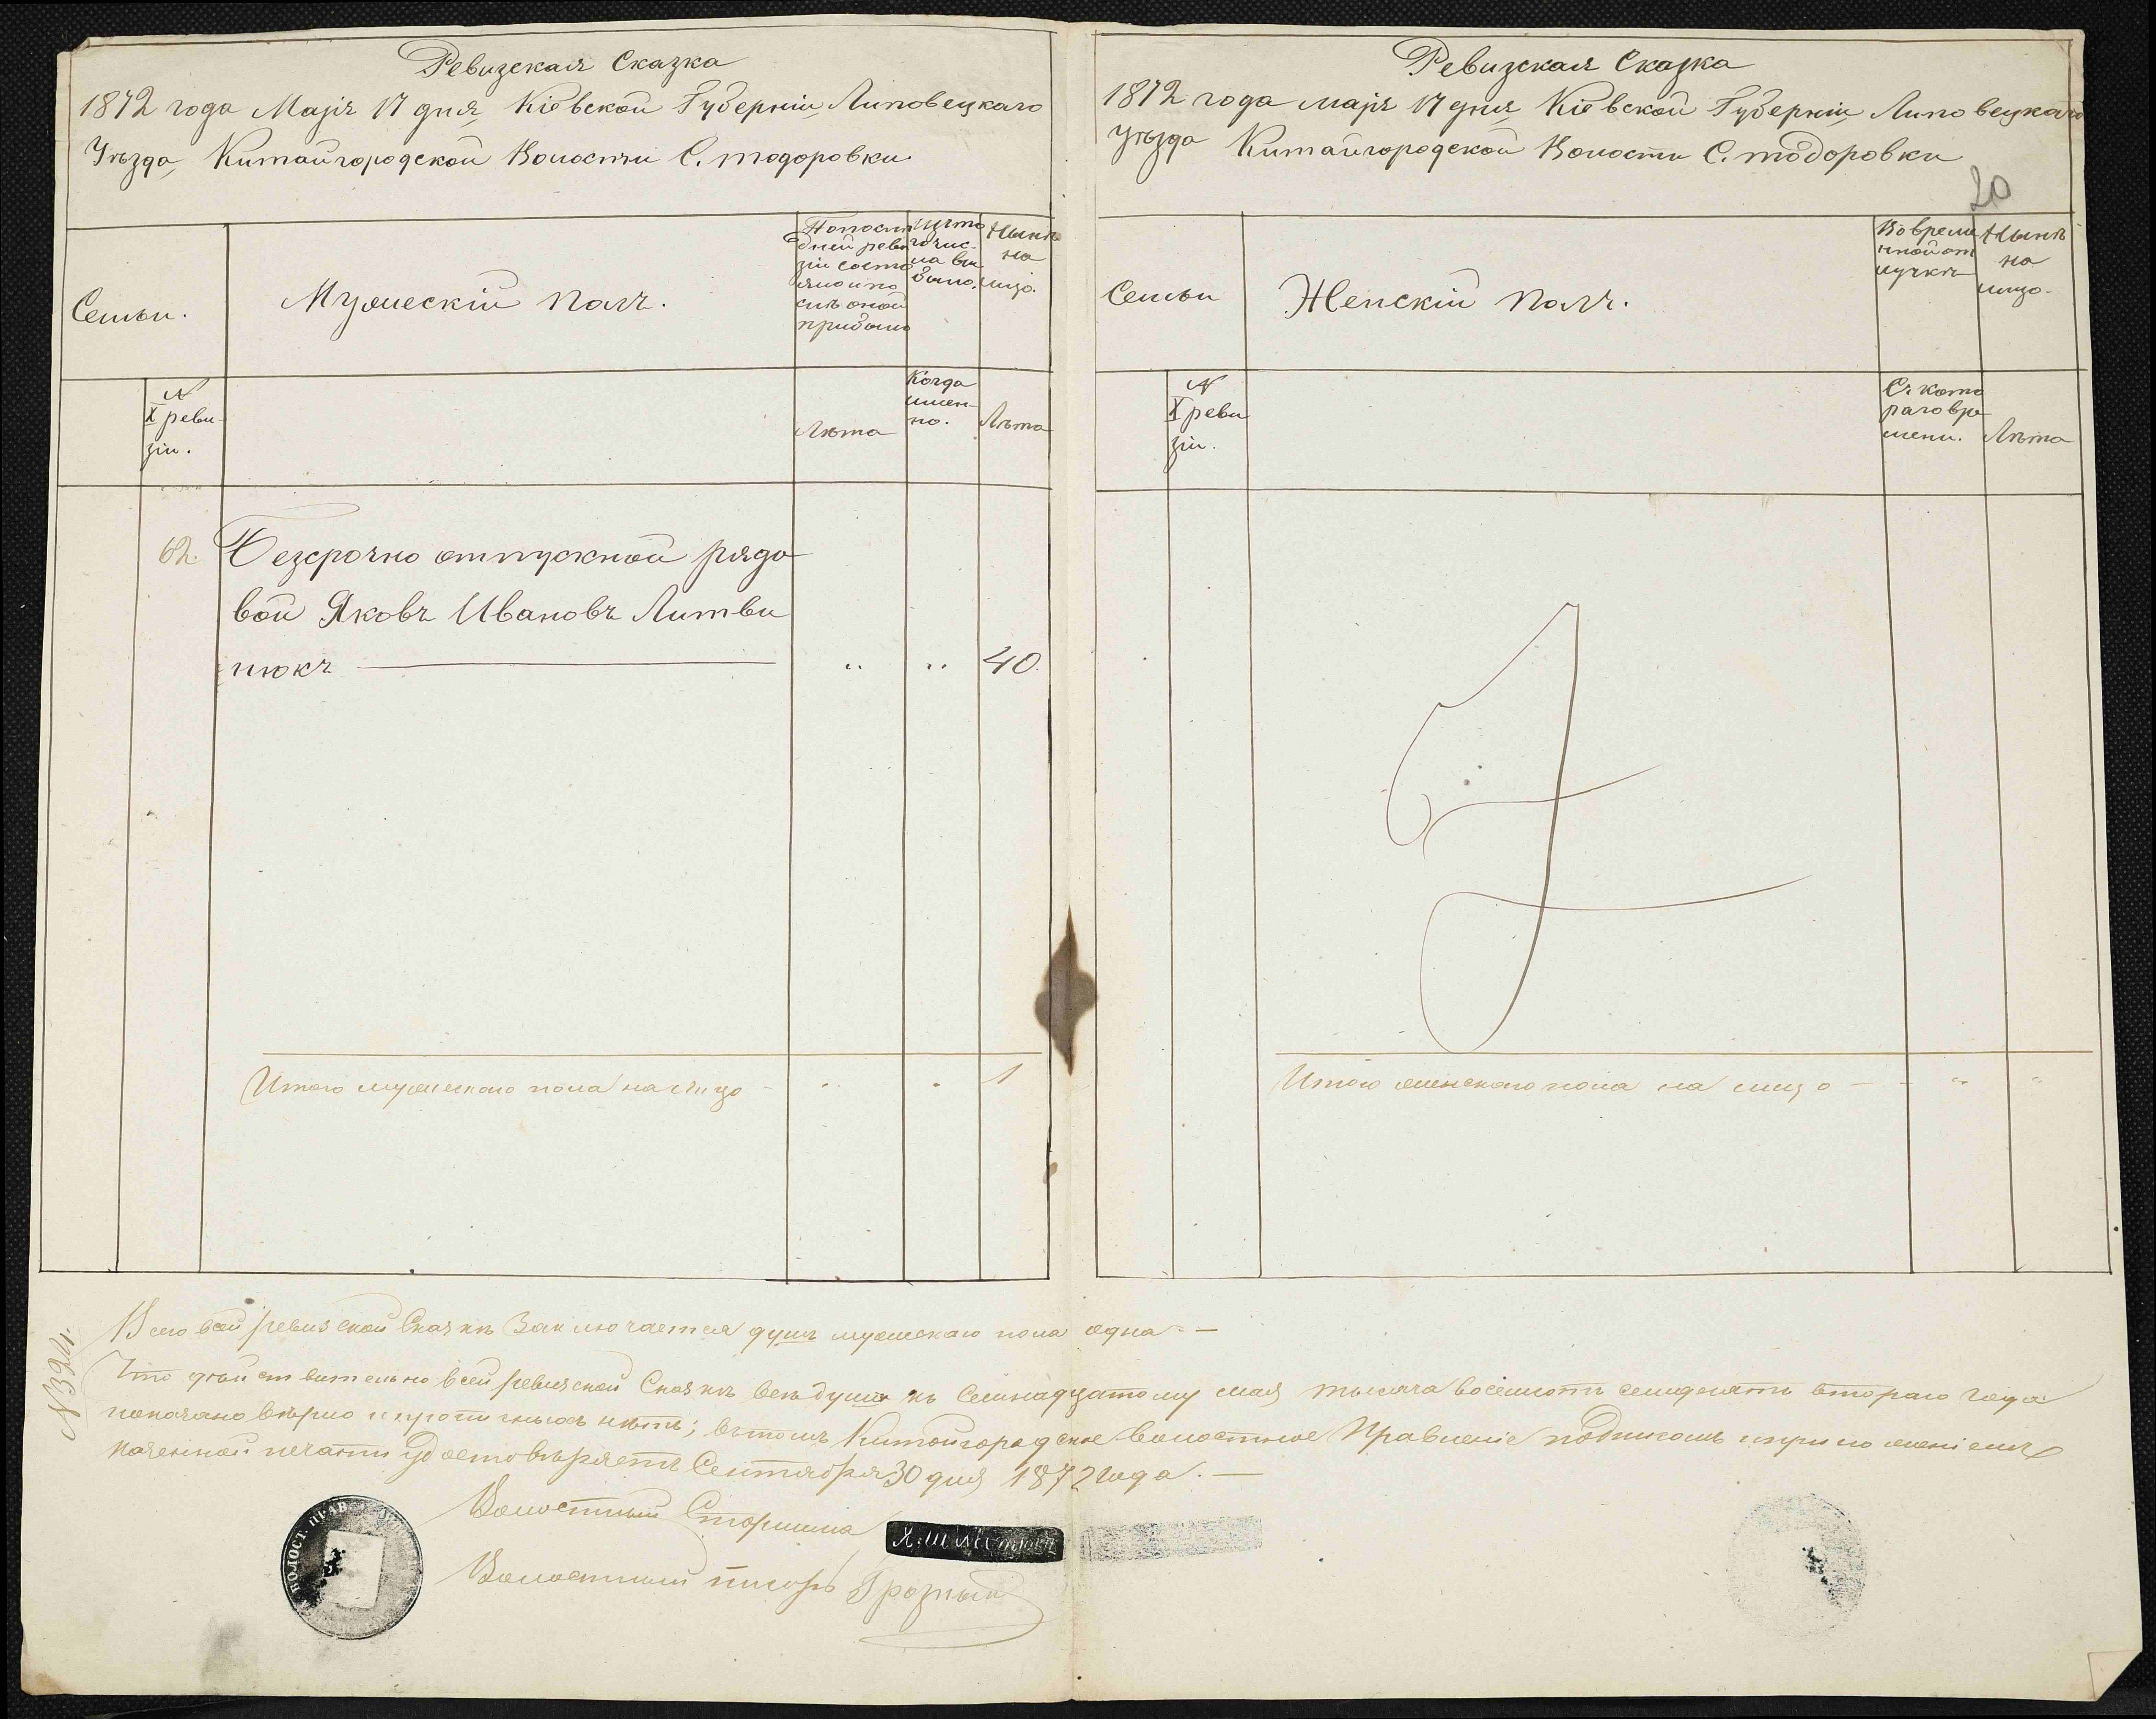 Ревизская Сказка
1872 года Маія 17 дня Кіевской Губерніи Липовецкаго
Уѣзда, Китайгородской Волости С. тодоровки
Семьи.
Мужескій полъ.
По послѣ
дней реви
зіи состо
яло и по
слѣ оной
прибыло
Изъ то
го чис-
ла вы
было.
Нынѣ
на
лицо.
N
X реви-
зіи.
Лѣта
Когда
имен-
но.
Лѣта
62. Безсрочно отпускной рядо
вой Яковъ Ивановъ Литви
нюкъ — „ „ 40.
Итого мужескаго пола на лицо - „ „ 1
Ревизская Сказка
1872 года маія 17 дня Кіевской Губерніи Липовецкаго
Уѣзда Китайгородской Волости С. тодоровки
20
Семьи
Женскій полъ.
Во време
нной от
лучкѣ
Нынѣ
на
лицо.
N
X реви
зіи.
Съ кото
раго вре
мени.
Лѣта
Итого женскаго пола на лицо - - „ „
N 324.
Всего в сей ревизской Сказкѣ Заключается душъ мужескаго пола одна. —
Что дѣйствительно в сей ревизской Сказкѣ всѣ души къ Семнадцатому мая тысяча восемьсотъ семьдесятъ втораго года
показано вѣрно и прописныхъ нѣтъ; въ томъ Китайгородское волостное Правленіе подписомъ и приложеніемъ
казенной печати удостовѣряетъ Сентября 30 дня 1872 года. —
Волостный Старшина
Волостный писарь Грозный
ВОЛОСТ. ПРАВ